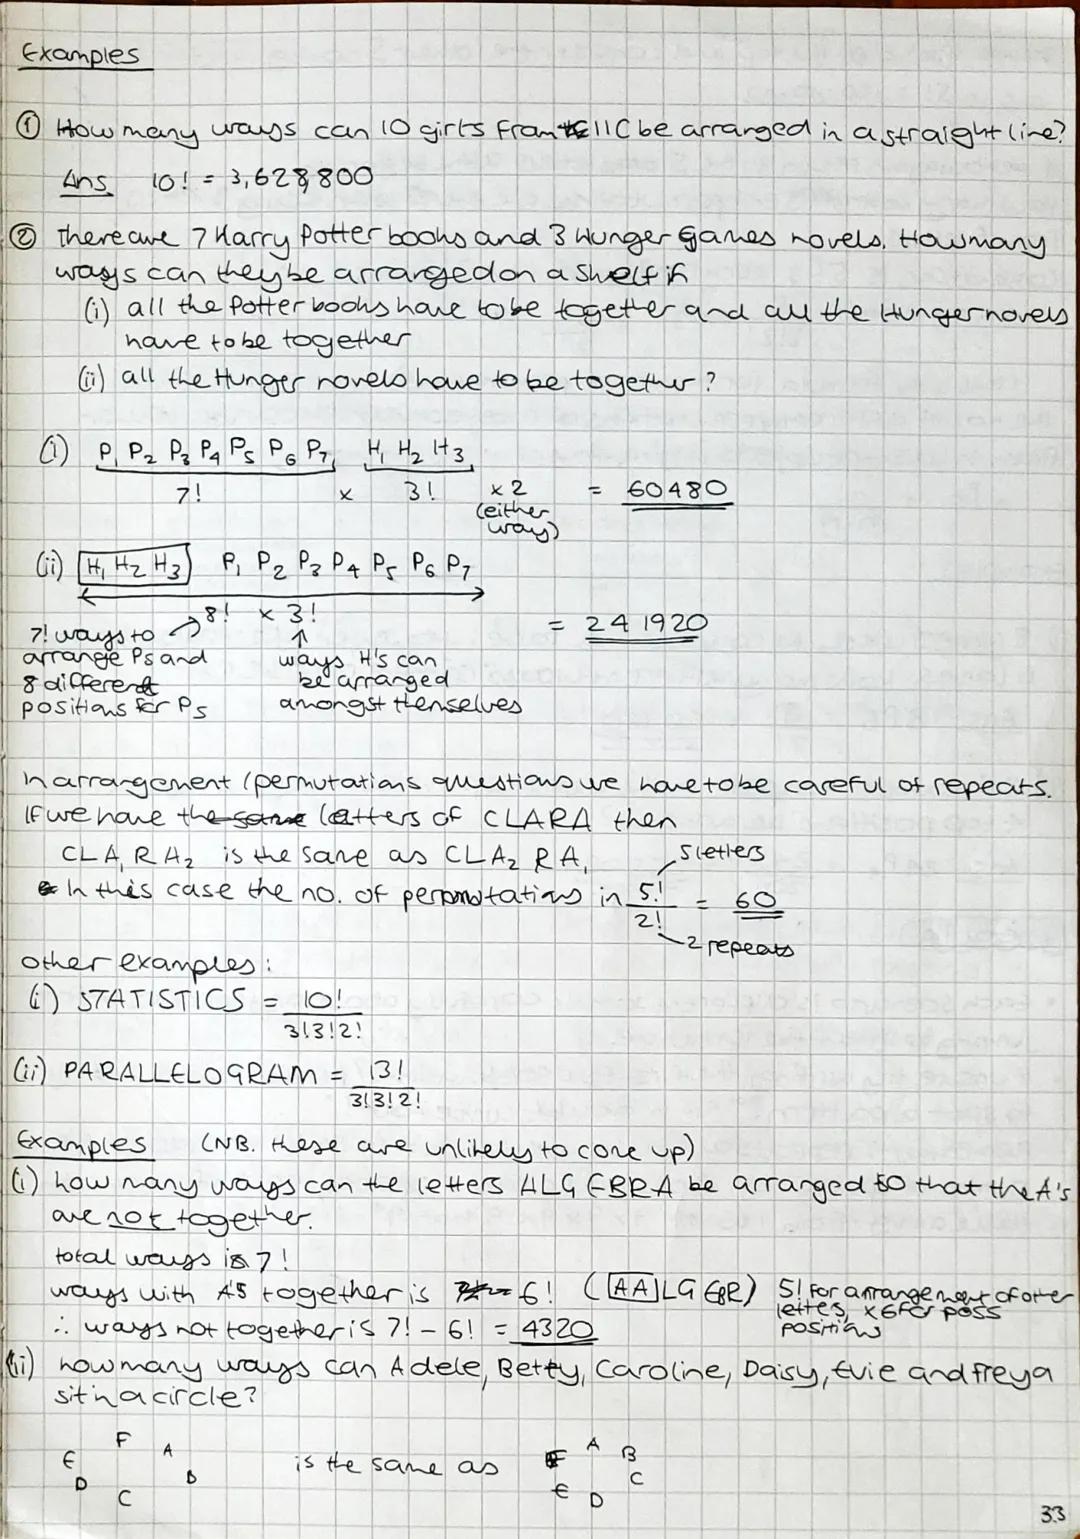 Examples
① How many ways can 10 girls from 11C be arranged in a straight line?
Ans 10! = 3,628,800
② There are 7 Harry Potter books and 3 Hunger Games novels. How many
ways can they be arranged on a shelf if
(i) all the Potter books have to be together and all the Hunger novels
have to be together
(ii) all the Hunger novels have to be together?
(i) P₁ P₂ P₃ P₄ P₅ P₆ P₇ H₁ H₂ H₃
7! × 3! × 2 = 60480
(either
way)
(ii) H₁ H₂ H₃ P₁ P₂ P₃ P₄ P₅ P₆ P₇
8! × 3! = 241920
7! ways to
arrange Ps and
8 different
positions for Ps
ways H's can
be arranged
amongst themselves
In arrangement / permutations questions we have to be careful of repeats.
If we have the same letters of CLARA then
CLA₁RA₂ is the same as CLA₂RA₁
5 letters
In this case the no. of permutations in 5!/2! = 60
2 repeats
other examples:
(i) STATISTICS = 10!/3!3!2!
(ii) PARALLELOGRAM = 13!/3!3!2!
Examples (NB. these are unlikely to come up)
(i) how many ways can the letters ALGEBRA be arranged so that the A's
are not together.
total ways is 7!
ways with A's together is 6! (AA LGEBR) 5! for arrangement of other
letters, ×6 for poss
positions
∴ ways not together is 7! - 6! = 4320
(ii) how many ways can Adele, Betty, Caroline, Daisy, Evie and Freya
sit in a circle?
F A B C D E is the same as A B C D E F
33